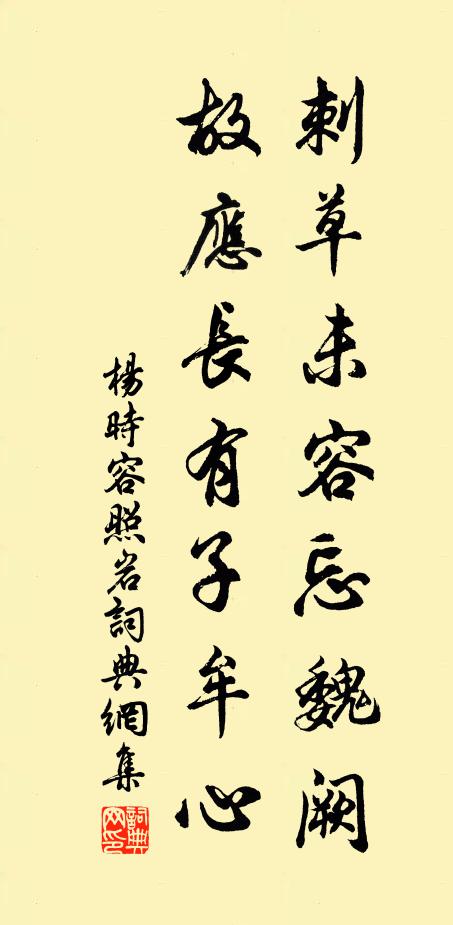 刺草未容忘魏阙
故應長有子牟心
楊時容照岩詞典網集
詞典网印